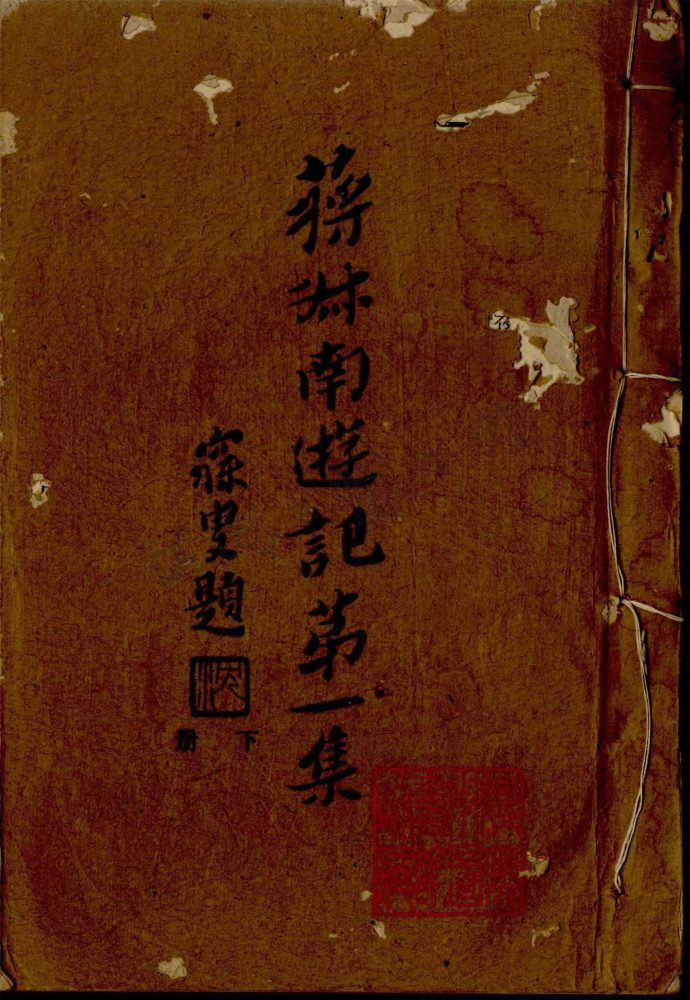 蔣叔南遊記第一集
寐叟題
下冊